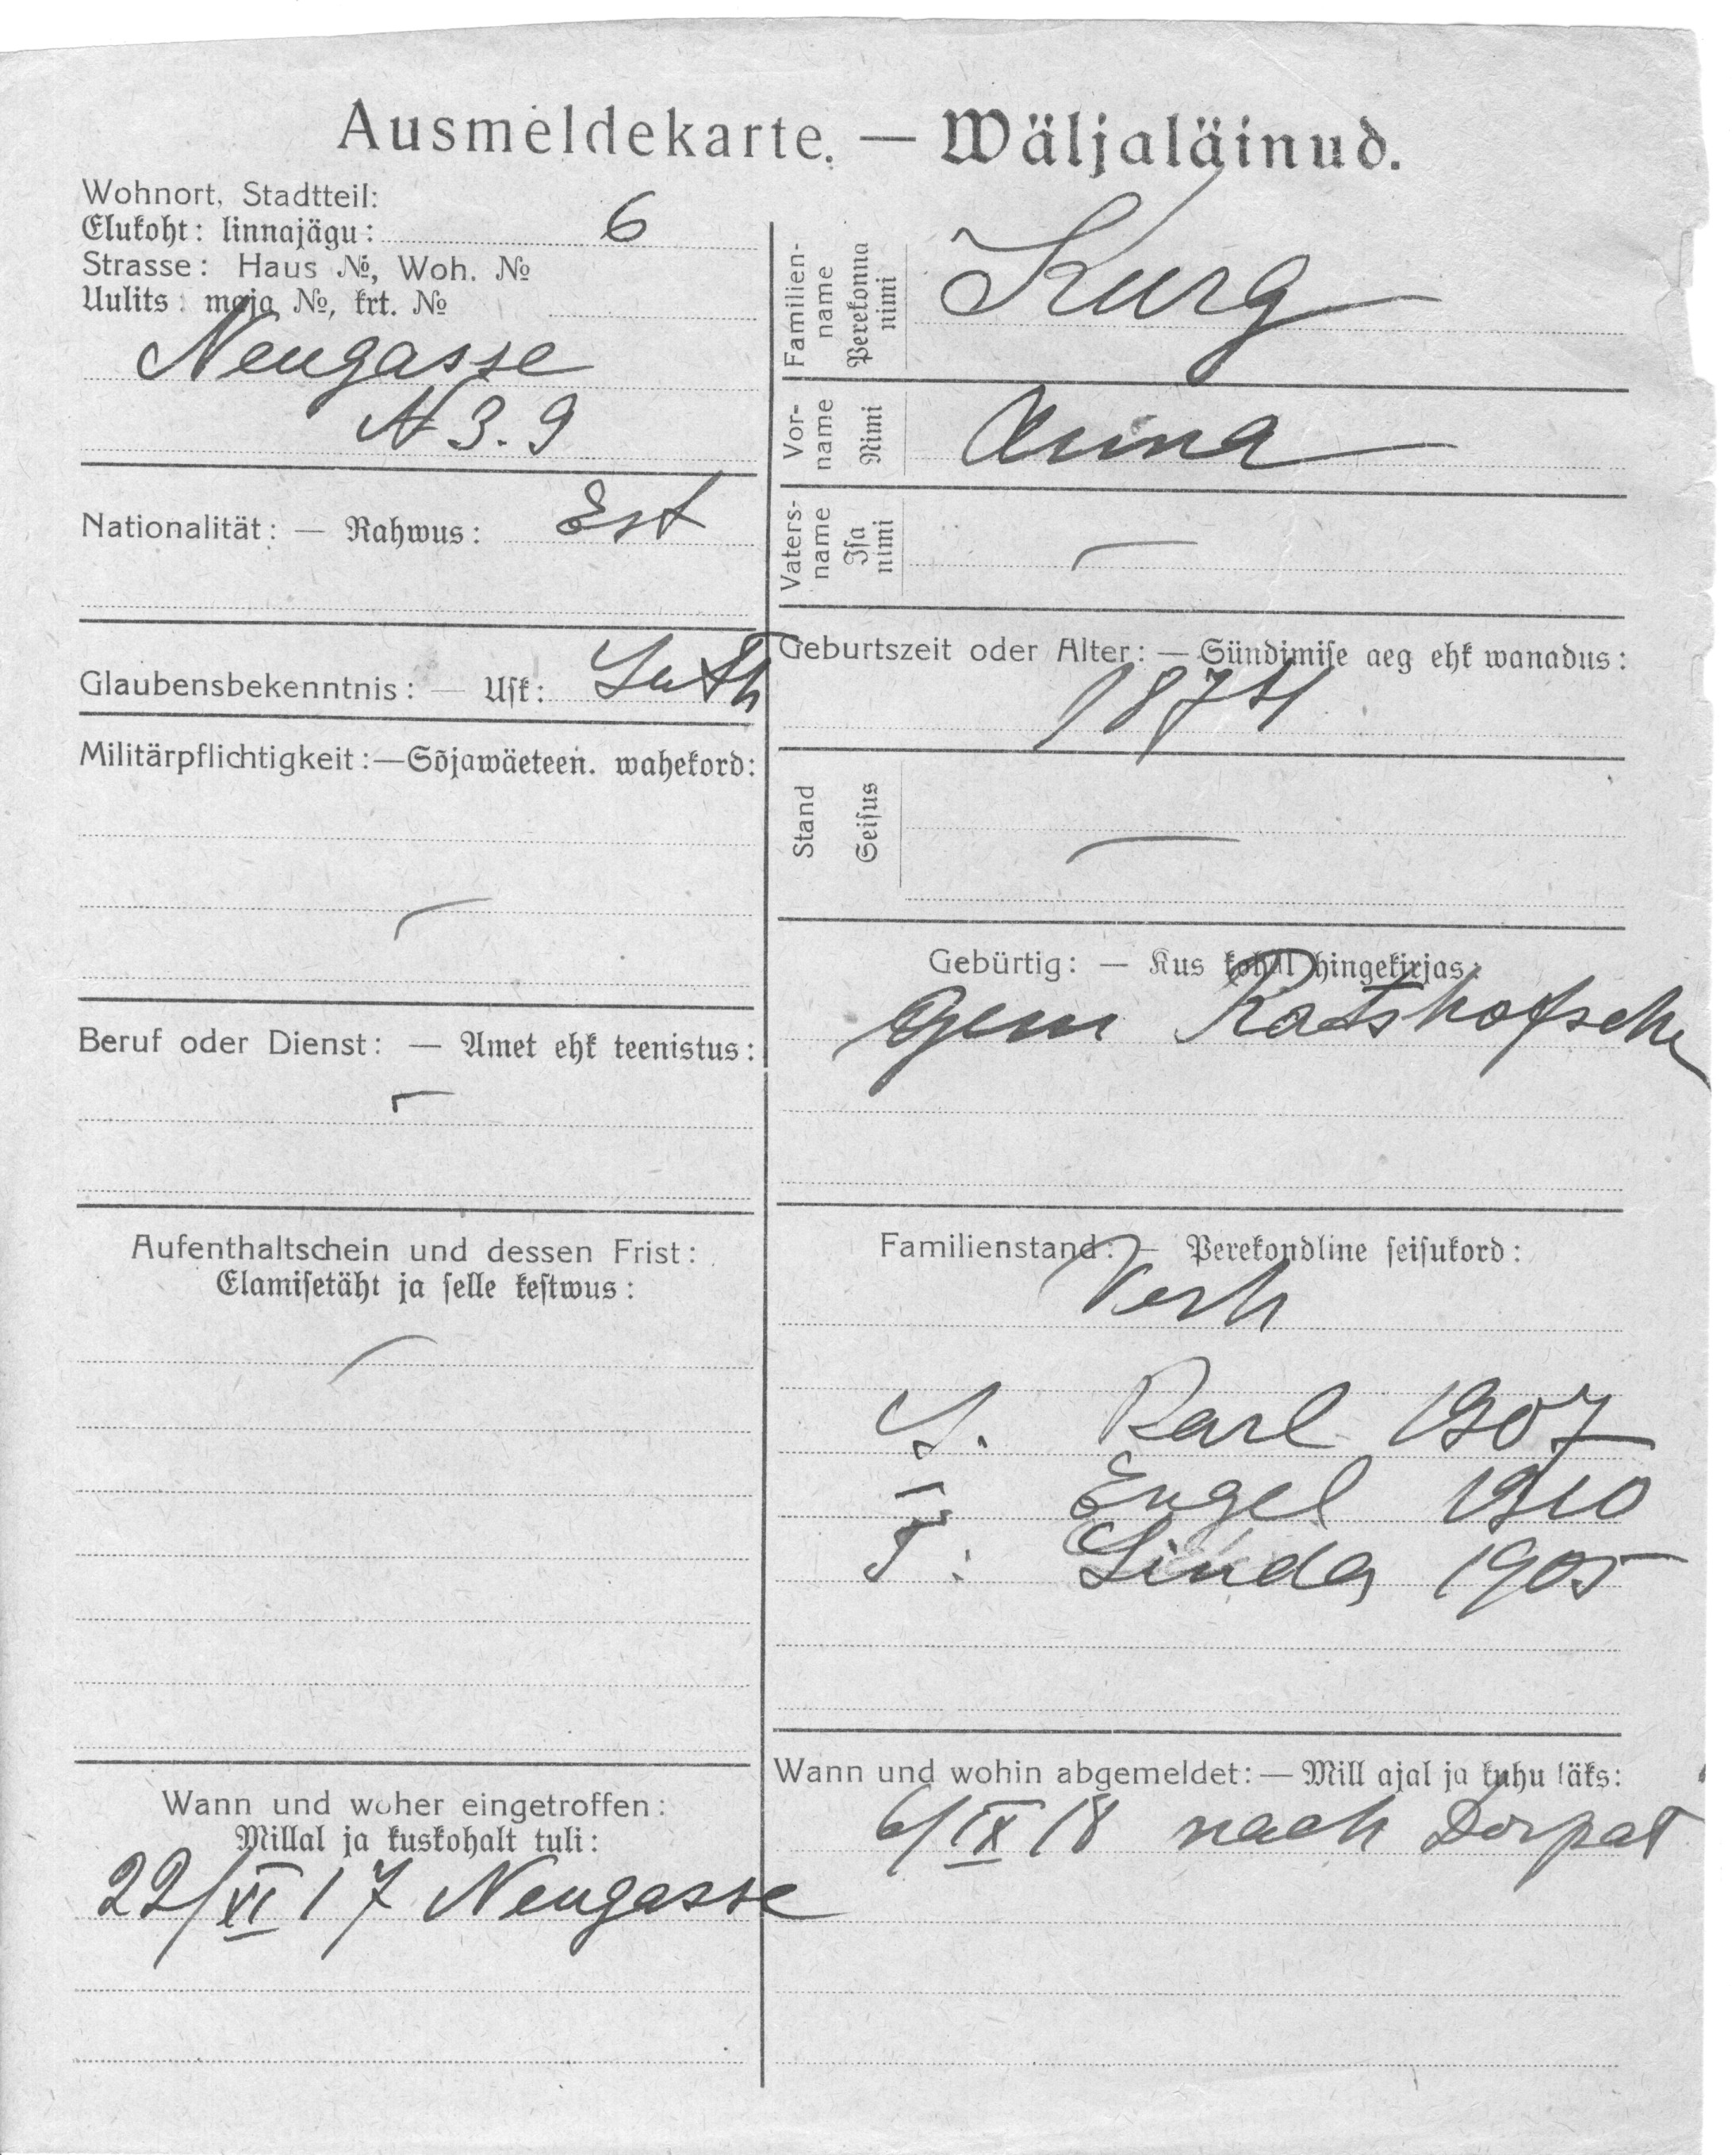 Ausmeldekarte. — Wäljaläinud.
Wohnort, Stadtteil:
Elukoht: linnajägu: 6
Strasse: Haus №, Woh. №
Uulits: maja №, krt. №
Neugasse
N 3. 9
Nationalität: — Rahwus: Est
Glaubensbekenntnis: — Usk: Luth
Militärpflichtigkeit: — Sõjawäeteen. wahekord:
Beruf oder Dienst: — Amet ehk teenistus:
Aufenthaltschein und dessen Frist:
Elamisetäht ja selle kestwus:
Wann und woher eingetroffen:
Millal ja kuskohalt tuli:
22/VI 17 Neugasse
Familien-
name
Perekonna
nimi
Kurg
Vor-
name
Nimi
Anna
Vaters-
name
Isa
nimi
Geburtszeit oder Alter: — Sündimise aeg ehk wanadus:
1874
Stand
Seisus
Gebürtig: — Kus kohal hingekirjas:
Gem Ratshofsche
Familienstand: — Perekondline seisukord:
Verh
S. Karl 1907
— Engel 1910
T: Linda 1905
Wann und wohin abgemeldet: — Mill ajal ja kuhu läks:
6/IX 18 nach Dorpat